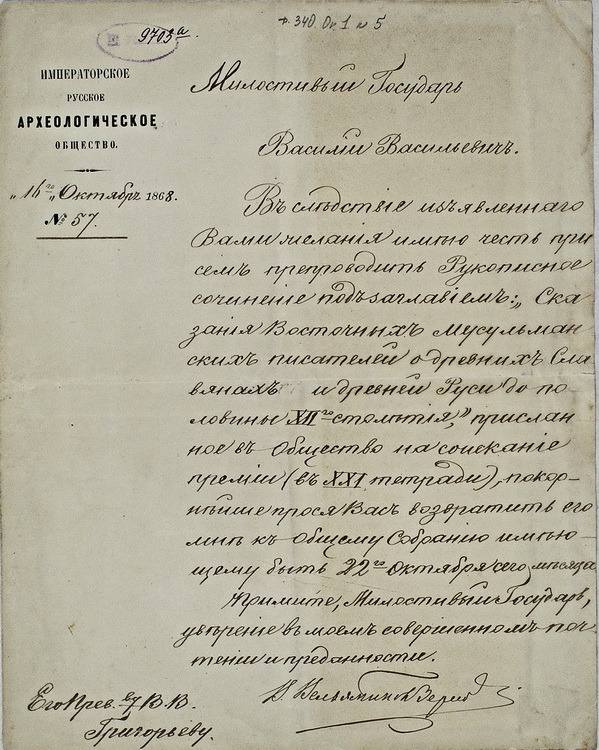 ф. 340. Оп. 1 № 5
9703а.
ИМПЕРАТОРСКОЕ
РУССКОЕ
АРХЕОЛОГИЧЕСКОЕ
ОБЩЕСТВО.
„16го„ Октябрь 1868.
№ 57.
Милостивый Государь
Василій Васильевичъ.
Въ слѣдствіе изъявленнаго
Вами желанія имѣю честь при
семъ препроводить Рукописное
сочиненіе подъ заглавіемъ: „Ска
занія Восточныхъ Мусульман
скихъ писателей о древнихъ Сла
вянахъ и древней Руси до по
ловины XIIго столѣтія," прислан
ное въ Общество на соисканіе
преміи (въ XXI тетради), покор-
нѣйше прося Васъ возвратить его
мнѣ къ общему Собранію имѣю-
щему быть 22го Октября сего мѣсяца
Примите, Милостивый Государь,
увѣреніе въ моемъ совершенномъ поч-
теніи и преданности.
В. Вельяминов Зернов
Его Прев. В. В.
Григорьеву.